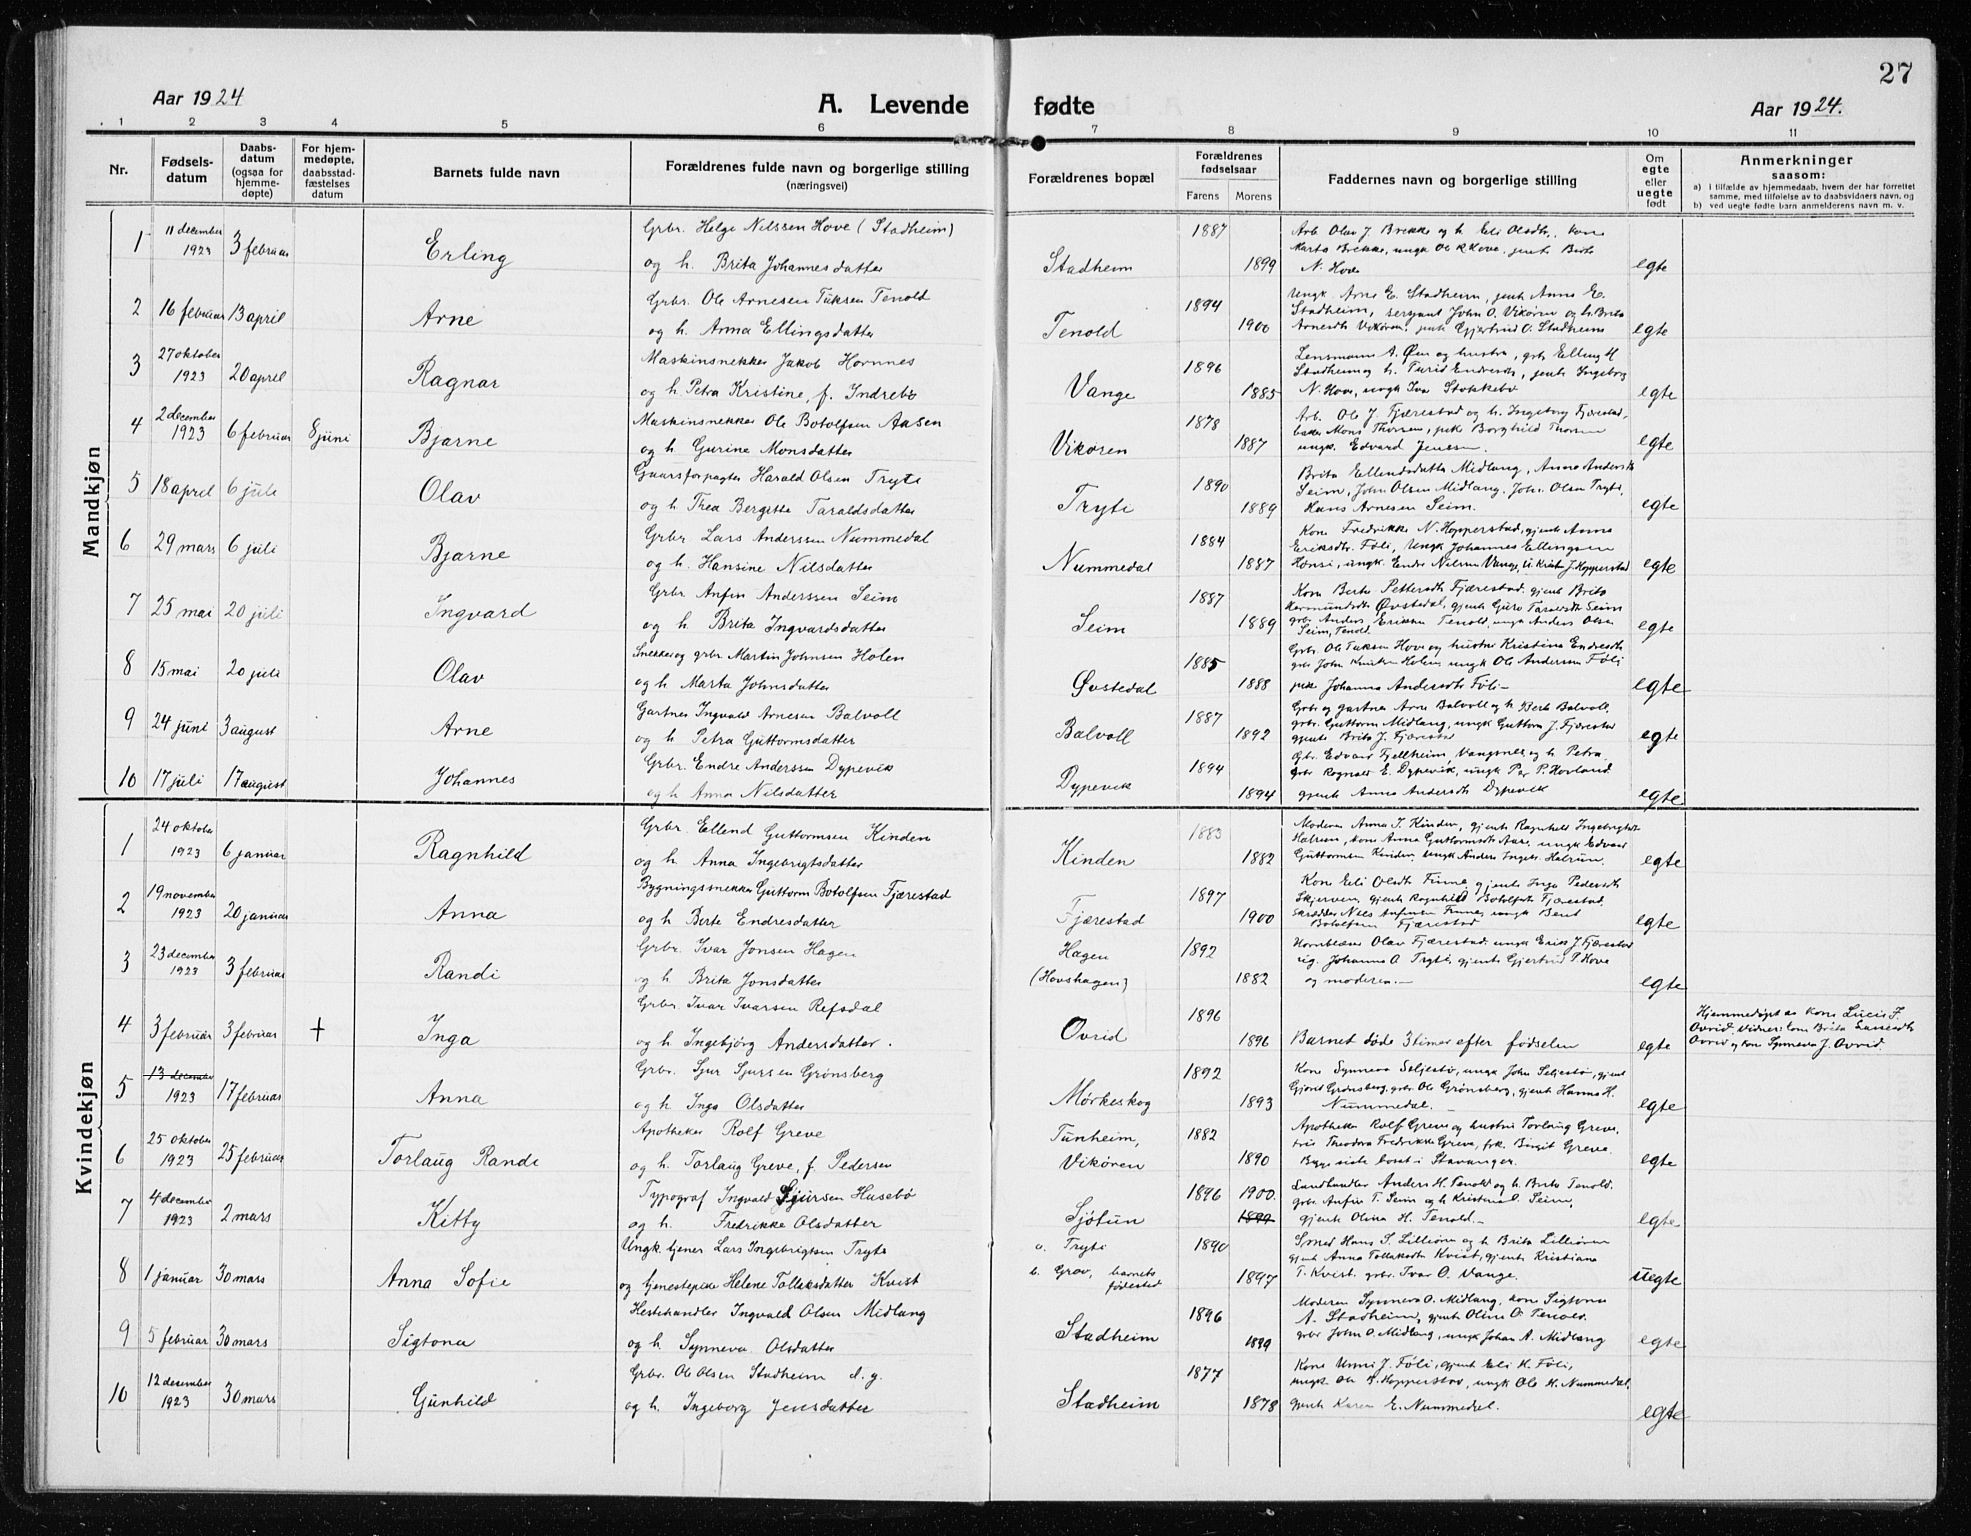 27
Aar 1924
A. Levende fødte
Aar 1924.
1 2 3 4 5 6 7 8 9 10 11
Nr.
Fødselsdatum
Daabsdatum (ogsaa for hjemmedøpte)
For hjemmedøpte, daabsstadfæstelses datum
Barnets fulde navn
Forældrenes fulde navn og borgerlige stilling (næringsvei)
Forældrenes bopæl
Forældrenes fødselsaar
Farens Morens
Faddernes navn og borgerlige stilling
Om egte eller uegte født
Anmerkninger saasom:
a) i tilfælde av hjemmedaab, hvem der har forrettet samme, med tilføielse av to daabsvidners navn, og
b) ved uegte fødte barn anmelderens navn m. v.
Mandkjøn
1 11 december 1923 3 februar Erling
Grbr. Helge Nilssen Hove (Stadheim)
og h. Brita Johannesdatter
Stadheim 1887 1899
Arb. Olav J. Brekke og h. Eli Olsdtr., kone
Marta Brekke, ungk Ole K Hove, jente Brita
N. Hove
egte
2 16 februar 13 april Arne
Grbr. Ole Arnesen Tuksen Tenold
og h. Anna Ellingsdatter
Tenold 1894 1900
Ungk. Arne E. Stadheim, jente Anna E.
Stadheim, sersjant John O. Vikøren og h. Brita
Arnesdtr Vikøren, jente Gjertrud O. Stadheim
egte
3 27 oktober 1923 20 april Ragnar
Maskinsnekker Jakob Hornnes
og h. Petra Kristine, f. Indrebø
Vange 1896 1885
Lensmann A. Øen og hustru, grb. Elling H
Stadheim og h. Turid Endresdtr, jente Ingeborg
N. Hove, ungk Ivar Stokkebø
egte
4 2 december 1923 6 februar 8 juni Bjarne
Maskinsnekker Ole Botolfsen Aasen
og h. Gurine Monsdatter
Vikøren 1878 1887
Arb. Ole J. Fjærestad og h. Ingeborg Fjærestad,
baker Mons Thorsen, jente Borghild Thorsen
ungk. Edvard Jenssen.
egte
5 18 april 6 juli Olav
Gaarsforpagter Harald Olsen Tryti
og h. Thea Bergitte Taraldsdatter
Tryti 1890 1889
Brita Ellendsdatter Midlang, Anna Andersdt
Seim, John Olsen Midlang, John Olsen Tryti,
Hans Arnesen Seim.
egte
6 29 mars 6 juli Bjarne
Grbr Lars Anderssen Nummedal
og h. Hansine Nilsdatter
Nummedal 1884 1887
Kone Fredrikke N. Hopperstad, gjente Anna
Eriksdtr. Føli, Ungk Johannes Ellingsen
Hønsi, ungk. Endre Nilsen Vange, u. Krist J. Hopperstad
egte
7 25 mai 20 juli Ingvard
Grbr Anfin Anderssen Seim
og h. Brita Ingvardsdatter
Seim 1887 1889
Kone Berta Pettersdt Fjærestad, gjente Brita
Øvstedal, gjente Guro Taraldsdt Seim
grbr Anders Eriksen Tenold, ungk Anders Olsen
Seim, Tenold
egte
8 15 mai 20 juli Olav
Snekker og grbr Martin Johnsen Holen
og h. Marta Johnsdatter
Øvstedal 1885 1888
Grbr. Ole Tuksen Hove og hustru Kristina Endresdt
grb. John Holen, ungk Ole Anderssen Føli
jente Johanna Andersdtr Føli-
egte
9 24 juni 3 august Arne
Gartner Ingvald Arnesen Balvoll
og h. Petra Guttormsdatter
Balvoll 1887 1892
Grbr og gartner Arne Balvoll og h. Berta Balvoll,
grbr. Guttorm Midlang, ungk Guttorm J. Fjærestad
gjente Brita J. Fjærestad
egte
10 17 juli 17 august Johannes
Grbr. Endre Anderssen Dypevik
og h Anna Nilsdatter
Dypevik 1894 1894
Gbr. Edvard Fjellheim, Vangsnes og h. Petra
Grbr Ragnald E. Dypevik, ungk Per P. Hovland
gjente Anna Andersdt Dypevik
egte
Kvindekjøn
1 24 oktober 1923 6 januar Ragnhild
Grbr. Ellend Guttormsen Kinden
og h. Anna Ingebrigtsdatter
Kinden 1883 1882
Moderen Anna I. Kinden, gjente Ragnhild Ingebrigtsdt
Halrun, kone Anna Guttormsdt Aase, ungk Edvard
Guttormsen Kinden, ungk Anders Ingebr. Halrun.
egte
2 19 november 1923 20 januar Anna
Bygningssnekker Guttorm Botolfsen Fjærestad
og h. Berte Endresdatter
Fjærestad 1897 1900
Kone Eli Olsdt Finne, gjente Inga Pedersdt
Skjerven, gjente Ragnhild Botolfsdt Fjærestad.
Skrædder Nils Anfinsen Finne, ungk Bent
Botolfsen Fjærestad
egte
3 23 december 1923 3 februar Randi
Grbr. Ivar Jonsen Hagen
og h Brita Jonsdatter
Hagen (Hovshagen) 1892 1882
Hornblæser Olav Fjærestad, ungk Erik J. Fjærestad
pig. Johanna O. Tryti, gjente Gjertrud P. Hove
og moderen.—
egte
4 3 februar 3 februar + Inga
Grbr Ivar Ivarsen Refsdal
og h Ingebjörg Andersdatter.
Ovrid 1896 1896
Barnet døde 3 timer efter fødselen
egte
Hjemmedöpt av kone Lucie F.
Ovrid. Vidner: kone Brita Larsesdt
Ovrid og kone Synneva J. Ovrid.
5 13 december 1923 17 februar Anna
Grbr. Sjur Sjursen Grønsberg
og h. Inga Olsdatter
Mørkeskog 1892 1893
Kone Synneva Seljestø, ungk John Seljestø, gjente
Gjørid Grønsberg, grbr. Ole Grønsberg, gjente Hanna H.
Nummedal.
egte
6 25 oktober 1923 25 februar Torlaug Randi
Apotheker Rolf Greve
og h. Torlaug Greve, f. Pedersen
Tunheim, Vikøren 1882 1890
Apotheker Rolf Greve og hustru Torlaug Greve,
fru Theodora Fredrikke Greve, frk. Birgit Greve.
Begge siste bosat i Stavanger.
egte
7 4 december 1923 2 mars Kitty
Typograf Ingvald Sjursen Husebö
og h. Fredrikke Olsdatter
Sjøtun 1896 1900. 1899
Landhandler Anders H. Tenold og h. Brita Tenold.
grbr. Anfin T. Seim og h Kristina O. Seim,
gjente Olina H. Tenold.—
egte
8 1 januar 30 mars Anna Sofie
Ungk. tjener Lars Ingebrigtsen Tryti
og tjenestepike Helene Tollaksdatter Kvist
a. Tryti
b. Grov, barnets fødested
1890 1897
Smed Hans S. Lilliøren og h Brita Lilliøren
gjente Anna Tollaksdt Kvist, gjente Kristiane
T. Kvist, grbr. Ivar O. Vange.
uegte
9 5 februar 30 mars Sigtona
Hestehandler Ingvald Olsen Midlang
og h. Synneva Olsdatter
Stadheim 1896 1899
Moderen Synneva O. Midlang, kone Sigtona
A. Stadheim, gjente Olina O. Tenold,
grbr John O. Midlang, ungk Johan A. Midlang
egte
10 12 desember 1923 30 mars Gunhild
Grbr. Ole Olsen Stadheim d. y.
og h. Ingeborg Jensdatter
Stadheim 1877 1878
Kone Unni J. Føli, gjente Eli H. Føli,
ungk Ole K. Hopperstad, ungk Ole H. Nummedal,
gjente Karen E. Nummedal.
egte